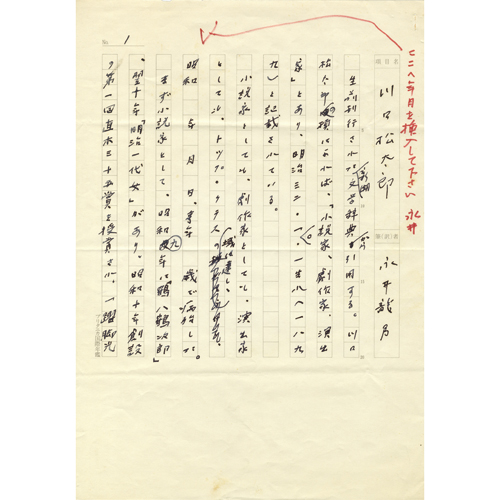 ここへ年月日を挿入して下さい 永井
項目名 川口松太郎 永井龍男
No. 1
生前刊行された「新潮文学辞典」から引用する。川口
松太郎の項によれば、「小説家、劇作家、演出
家」とあり、明治三二・一〇・一生れ(一八九
九)と記載されている。
小説家としても、劇作家としても、演出家
としても、トップ・クラスの域に達し、
昭和 年 月 日、享年 歳で歿した。
まず小説家として、昭和九年に「鶴八鶴次郎」
、翌十年「明治一代女」があり、昭和十年創設
の第一回直木三十五賞を授賞され、一躍脚光